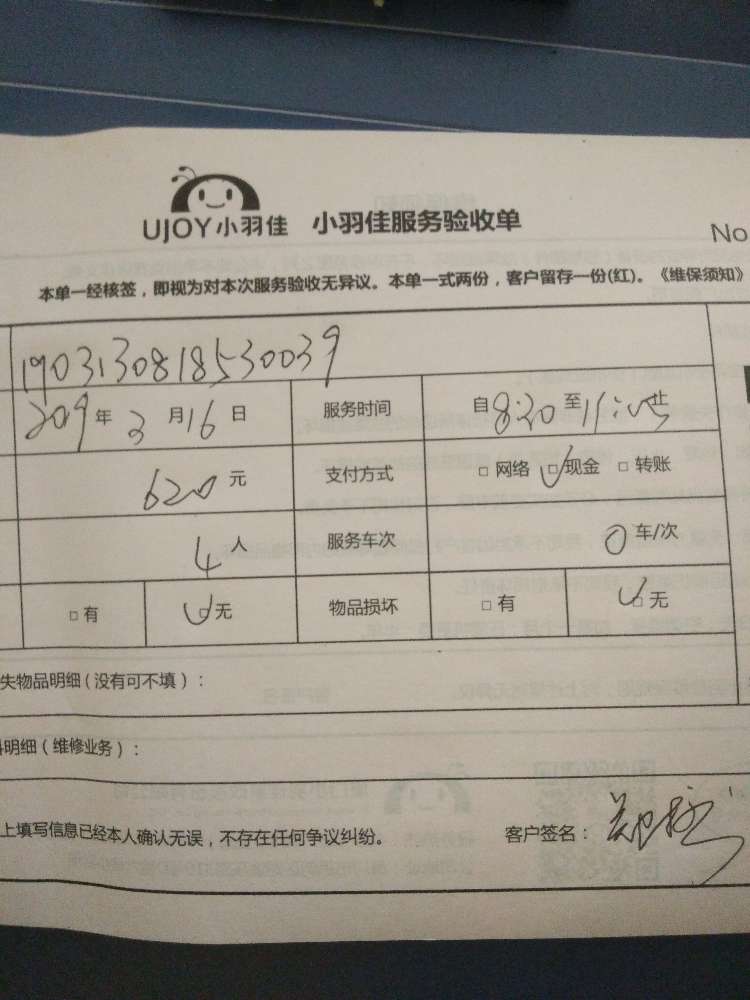 UJOY小羽佳 小羽佳服务验收单
No
本单一经核签，即视为对本次服务验收无异议。本单一式两份，客户留存一份(红)。《维保须知》
1903130818530039
2019年3月16日 服务时间 自8:20至11:05止
620元 支付方式 □网络 □现金 □转账
4人 服务车次 0车/次
□有 □无 物品损坏 □有 □无
失物品明细(没有可不填)：
料明细(维修业务)：
上填写信息已经本人确认无误，不存在任何争议纠纷。 客户签名：